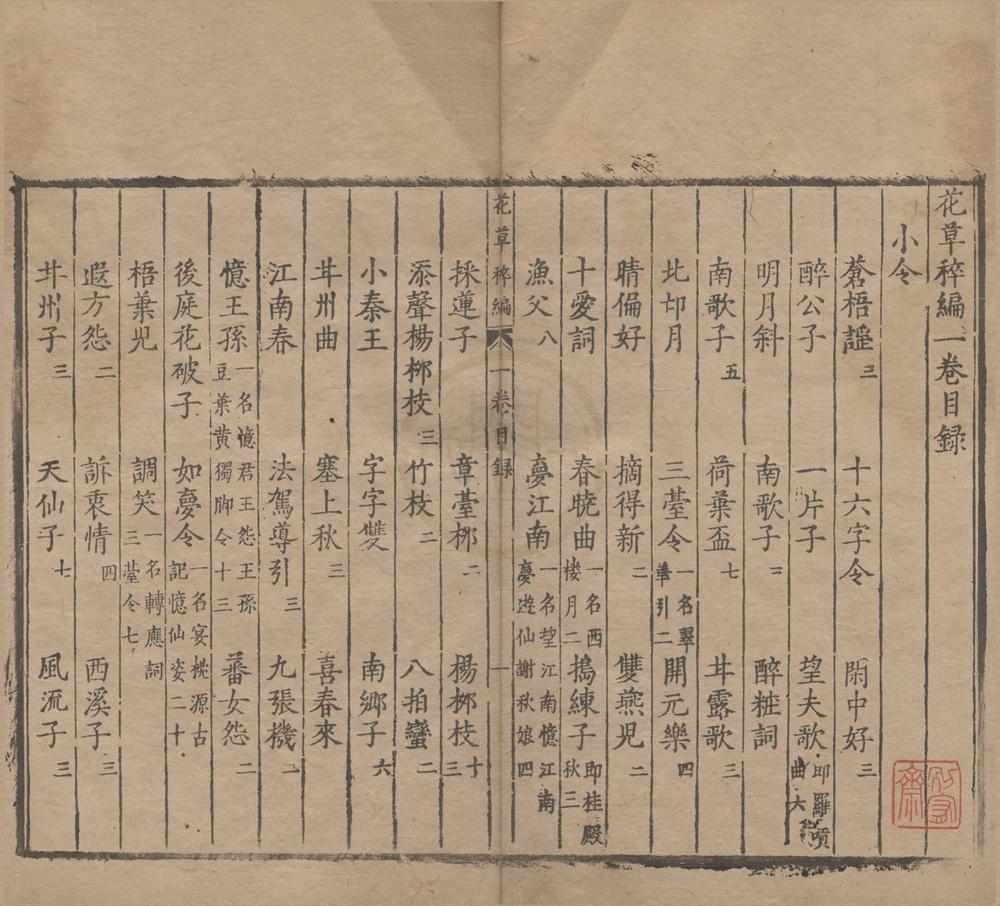 花草稡編一卷目録
小令
蒼梧謡三 十六字令 閑中好三
醉公子 一片子 望夫歌即羅嗊曲六
明月斜 南歌子二 醉粧詞
南歌子五 荷葉盃七 甘露歌三
比邙月 三䑓令一名翠華引二 開元樂四
晴偏好 摘得新二 雙燕兒二
十愛詞 春曉曲一名西樓月二 搗練子即桂殿秋三
漁父八 夢江南一名望江南憶江南夢遊仙謝秋娘四
花草稡編 一卷目録 一
採蓮子 章䑓桞二 楊桞枝十三
添聲楊桞枝三 竹枝二 八拍蠻二
小秦王 字字雙 南鄉子六
甘州曲 塞上秋三 喜春來
江南春 法駕導引三 九張機二
憶王孫一名憶君王怨王孫豆葉黄獨脚令十三 蕃女怨二
後庭花破子 如夢令一名宴桃源古記憶仙姿二十
梧葉兒 調笑一名轉應詞三䑓令七
遐方怨二 訴衷情四 西溪子三
甘州子三 天仙子七 風流子三